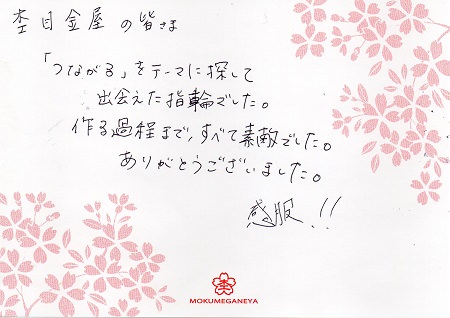 杢目金屋 の皆さま
「つながる」をテーマに探して
出会えた指輪でした。
作る過程まで、すべて素敵でした。
ありがとうございました。
感服!!
杢
MOKUMEGANEYA